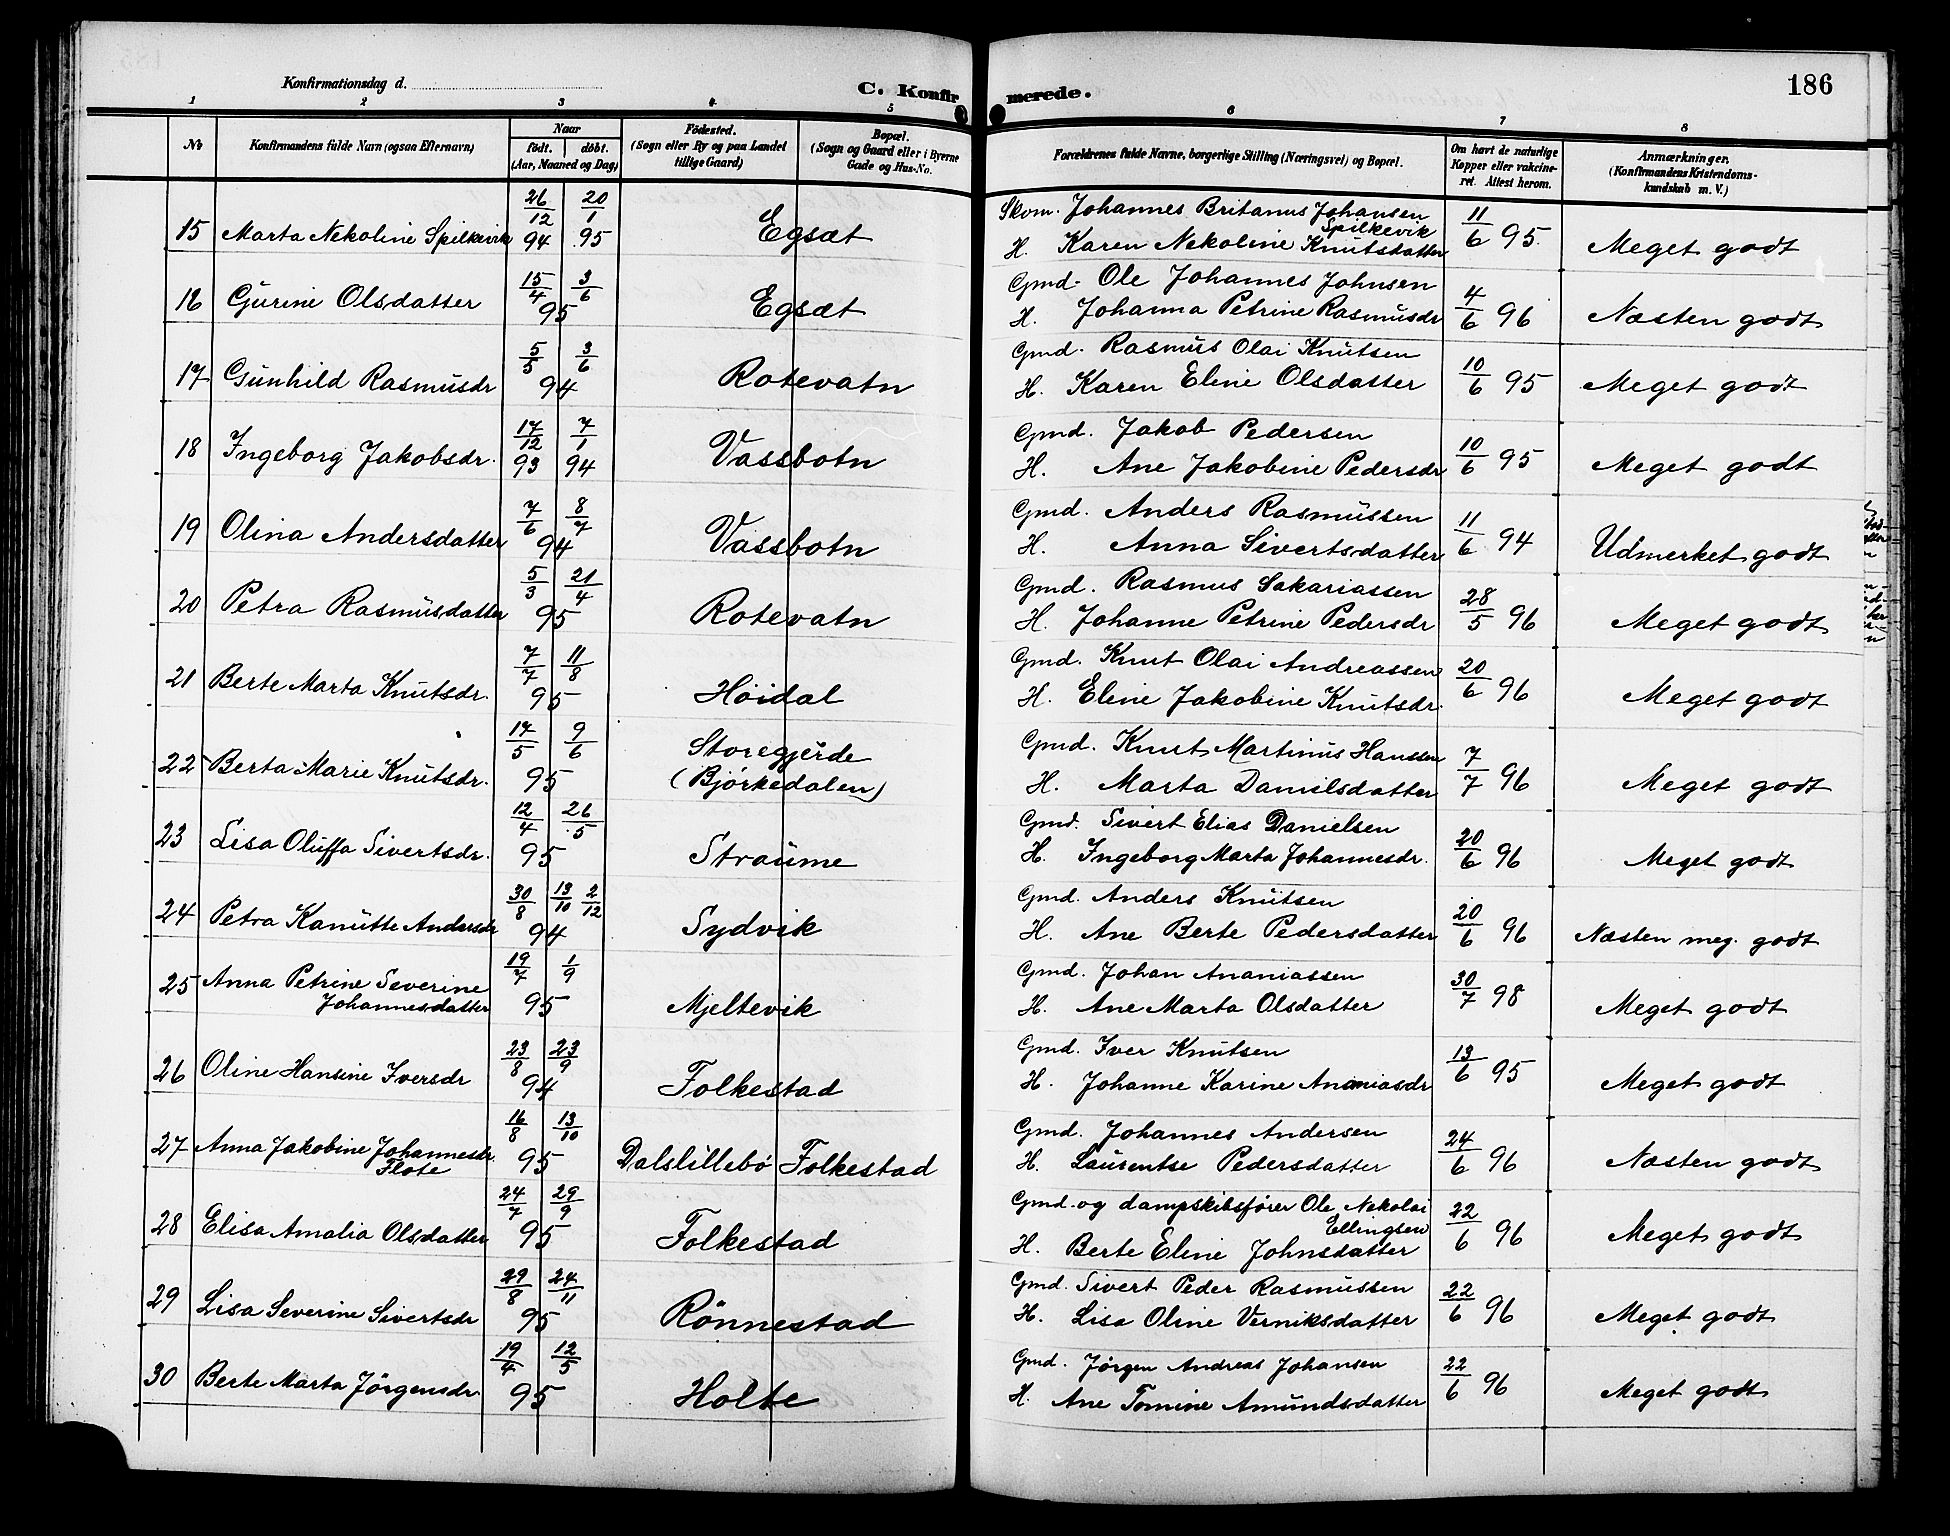 186
Konfirmationsdag d.
C. Konfirmerede.
1 2 3 4 5 6 7 8
No
Konfirmandens fulde Navn (ogsaa Efternavn)
Naar
født. døbt.
(Aar, Maaned og Dag)
Fødested.
(Sogn eller By og paa Landet
tillige Gaard)
Bopæl.
(Sogn og Gaard eller i Byerne
Gade og Hus-No.
Forældrenes fulde Navne, borgerlige Stilling (Næringsvei) og Bopæl.
Om havt de naturlige
Kopper eller vakcine-
ret. Attest herom.
Anmærkninger.
(Konfirmandens Kristendoms-
kundskab m. V.)
15 Marta Nekoline Spilkevik 26/12 94 20/1 95 Egsæt Skom. Johannes Britanus Johansen Spilkevik 11/6 95. Meget godt
H. Karen Nekoline Knutsdatter
16 Gjurine Olsdatter 15/4 3/6 95 Egsæt Gmd. Ole Johannes Johnsen 4/6 96 Næsten godt
H. Johanna Petrine Rasmusdr
17 Gunhild Rasmusdr 5/5 3/6 94 Rotevatn Gmd. Rasmus Olai Knutsen 10/6 95 Meget godt
H. Karen Eline Olsdatter
18 Ingeborg Jakobsdr. 17/12 93 7/1 94 Vassbotn Gmd. Jakob Pedersen 10/6 95 Meget godt
H. Ane Jakobine Pedersdr
19 Olina Andersdatter 7/6 8/7 94 Vassbotn Gmd. Anders Rasmussen 11/6 94 Udmerket godt
H. Anna Sivertsdatter
20 Petra Rasmusdatter 5/3 21/4 95 Rotevatn Gmd. Rasmus Sakariassen 28/5 96 Meget godt
H. Johanne Petrine Pedersdr
21 Berte Marta Knutsdr. 7/7 11/8 95 Høidal Gmd. Knut Olai Andreassen 20/6 96 Meget godt
H. Eline Jakobine Knutsdr.
22 Berta Marie Knutsdr. 17/5 9/6 95 Storegjerde Gmd. Knut Martinus Hanssen 7/7 96 Meget godt
(Bjørkedalen) H. Marta Danielsdatter
23 Lisa Oluffa Sivertsdr. 12/4 26/5 95 Straume Gmd. Sivert Elias Danielsen 20/6 96 Meget godt
H. Ingeborg Marta Johannesdr.
24 Petra Kanutte Andersdr 30/8 13/10 2/12 94 Sydvik Gmd. Anders Knutsen 20/6 96 Næsten meg. godt
H. Ane Berte Pedersdatter
25 Anna Petrine Severine 19/7 1/9 95 Mjeltevik Gmd. Johan Ananiassen 30/7 98 Meget godt
Johannesdatter H. Ane Marta Olsdatter
26 Oline Hansine Iversdr 23/8 23/9 94 Folkestad Gmd. Iver Knutsen 13/6 95 Meget godt
H. Johanne Karine Ananiasdr
27 Anna Jakobine Johannesdr. 16/8 13/10 95 Dalslillebø Folkestad Gmd. Johannes Andersen 24/6 96 Næsten godt
Flote H. Laurentse Pedersdatter
28 Elisa Amalia Olsdatter 24/7 29/9 95 Folkestad Gmd. og dampskibsfører Ole Nekolai Ellingsen 22/6 96 Meget godt
H. Berte Eline Johnsdatter
29 Lisa Severine Sivertsdr 29/8 24/11 95 Rønnestad Gmd. Sivert Peder Rasmussen 22/6 96 Meget godt
H. Lisa Oline Verniksdatter
30 Berte Marta Jørgensdr. 19/4 12/5 95 Holte Gmd. Jørgen Andreas Johansen 22/6 96 Meget godt
H. Ane Tomine Amundsdatter